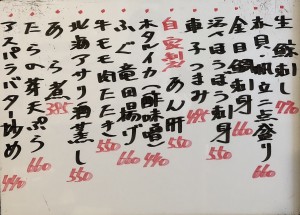 生鮮刺し 770
赤貝、帆立二点盛り 660
金目鯛刺身 660
活べほうぼう刺身 550
車子つまみ 495
自家製あん肝 550
ホタルイカ(酢味噌) 440
ふぐ竜田揚げ 660
牛モモ肉たたき
北海アサリ酒蒸し 550
あら煮 385
たらの芽天ぷら 660
アスパラバター炒め 440